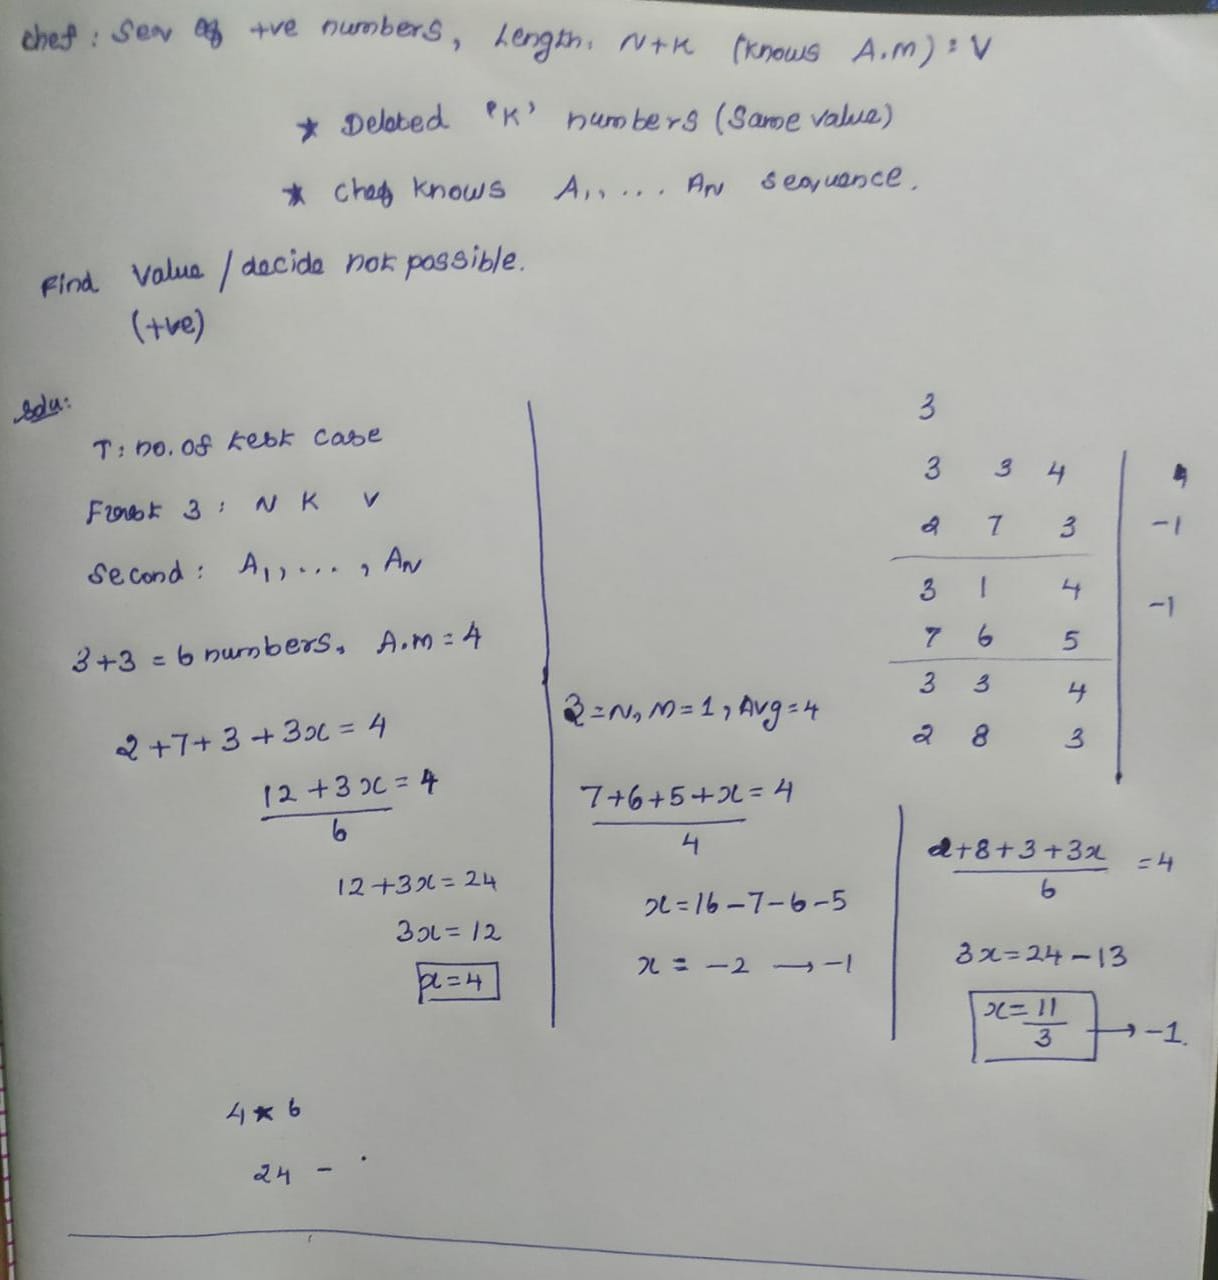 chef : Seq of +ve numbers, Length, N+K (knows A.M) : V
* Deleted 'K' numbers (Same value)
* Chef knows A1, ... AN sequence.
Find Value / decide not possible.
(+ve)
Solu:
T : no. of test case
First 3 : N K V
Second : A1, ... , AN
3+3 = 6 numbers, A.M = 4
2+7+3+3x = 4
12+3x = 4
6
12+3x = 24
3x = 12
x = 4
4 * 6
24 - .
3
3 3 4 4
2 7 3 -1
3 1 4 -1
7 6 5
3 3 4
2 8 3
3=N, M=1, Avg=4
7+6+5+x = 4
4
x = 16-7-6-5
x = -2 → -1
2+8+3+3x = 4
6
3x = 24-13
x = 11
3 → -1.